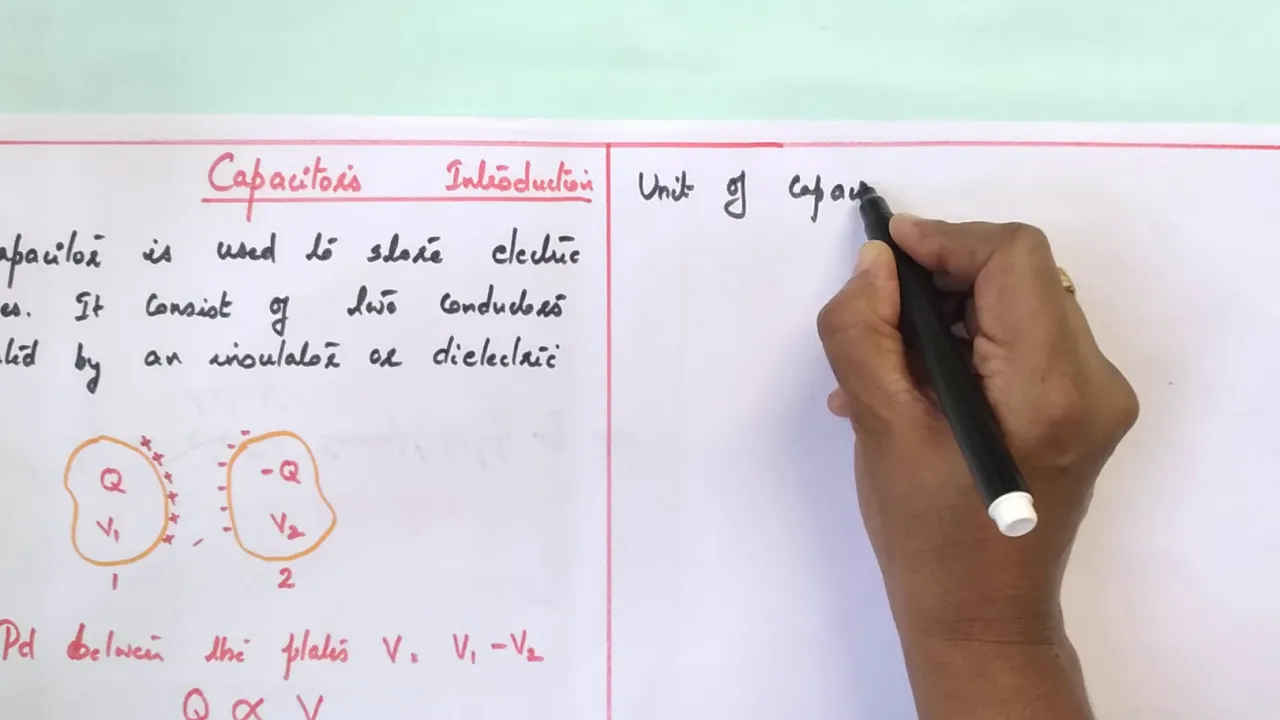 Capacitors Introduction
apacitor is used to store electric
es. It consist of two conductors
ted by an insulator or dielectric
Q -Q
V₁ V₂
1 2
Pd between the plates V = V₁ - V₂
Q ∝ V
Unit of Capaci